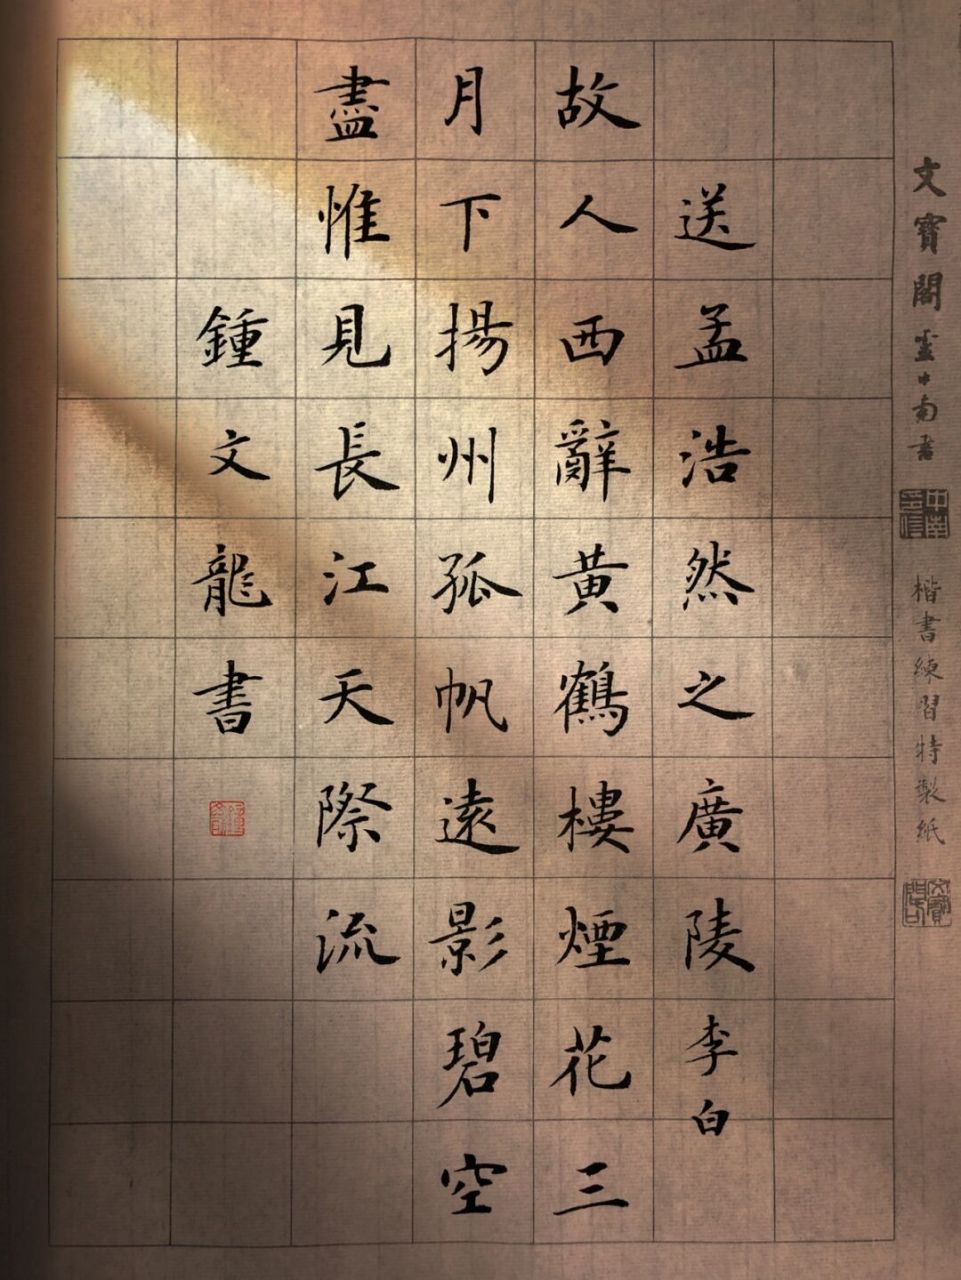 送孟浩然之廣陵李白
故人西辭黃鶴樓煙花三
月下揚州孤帆遠影碧空
盡惟見長江天際流
鍾文龍書
文寶閣
楷書練習特製紙